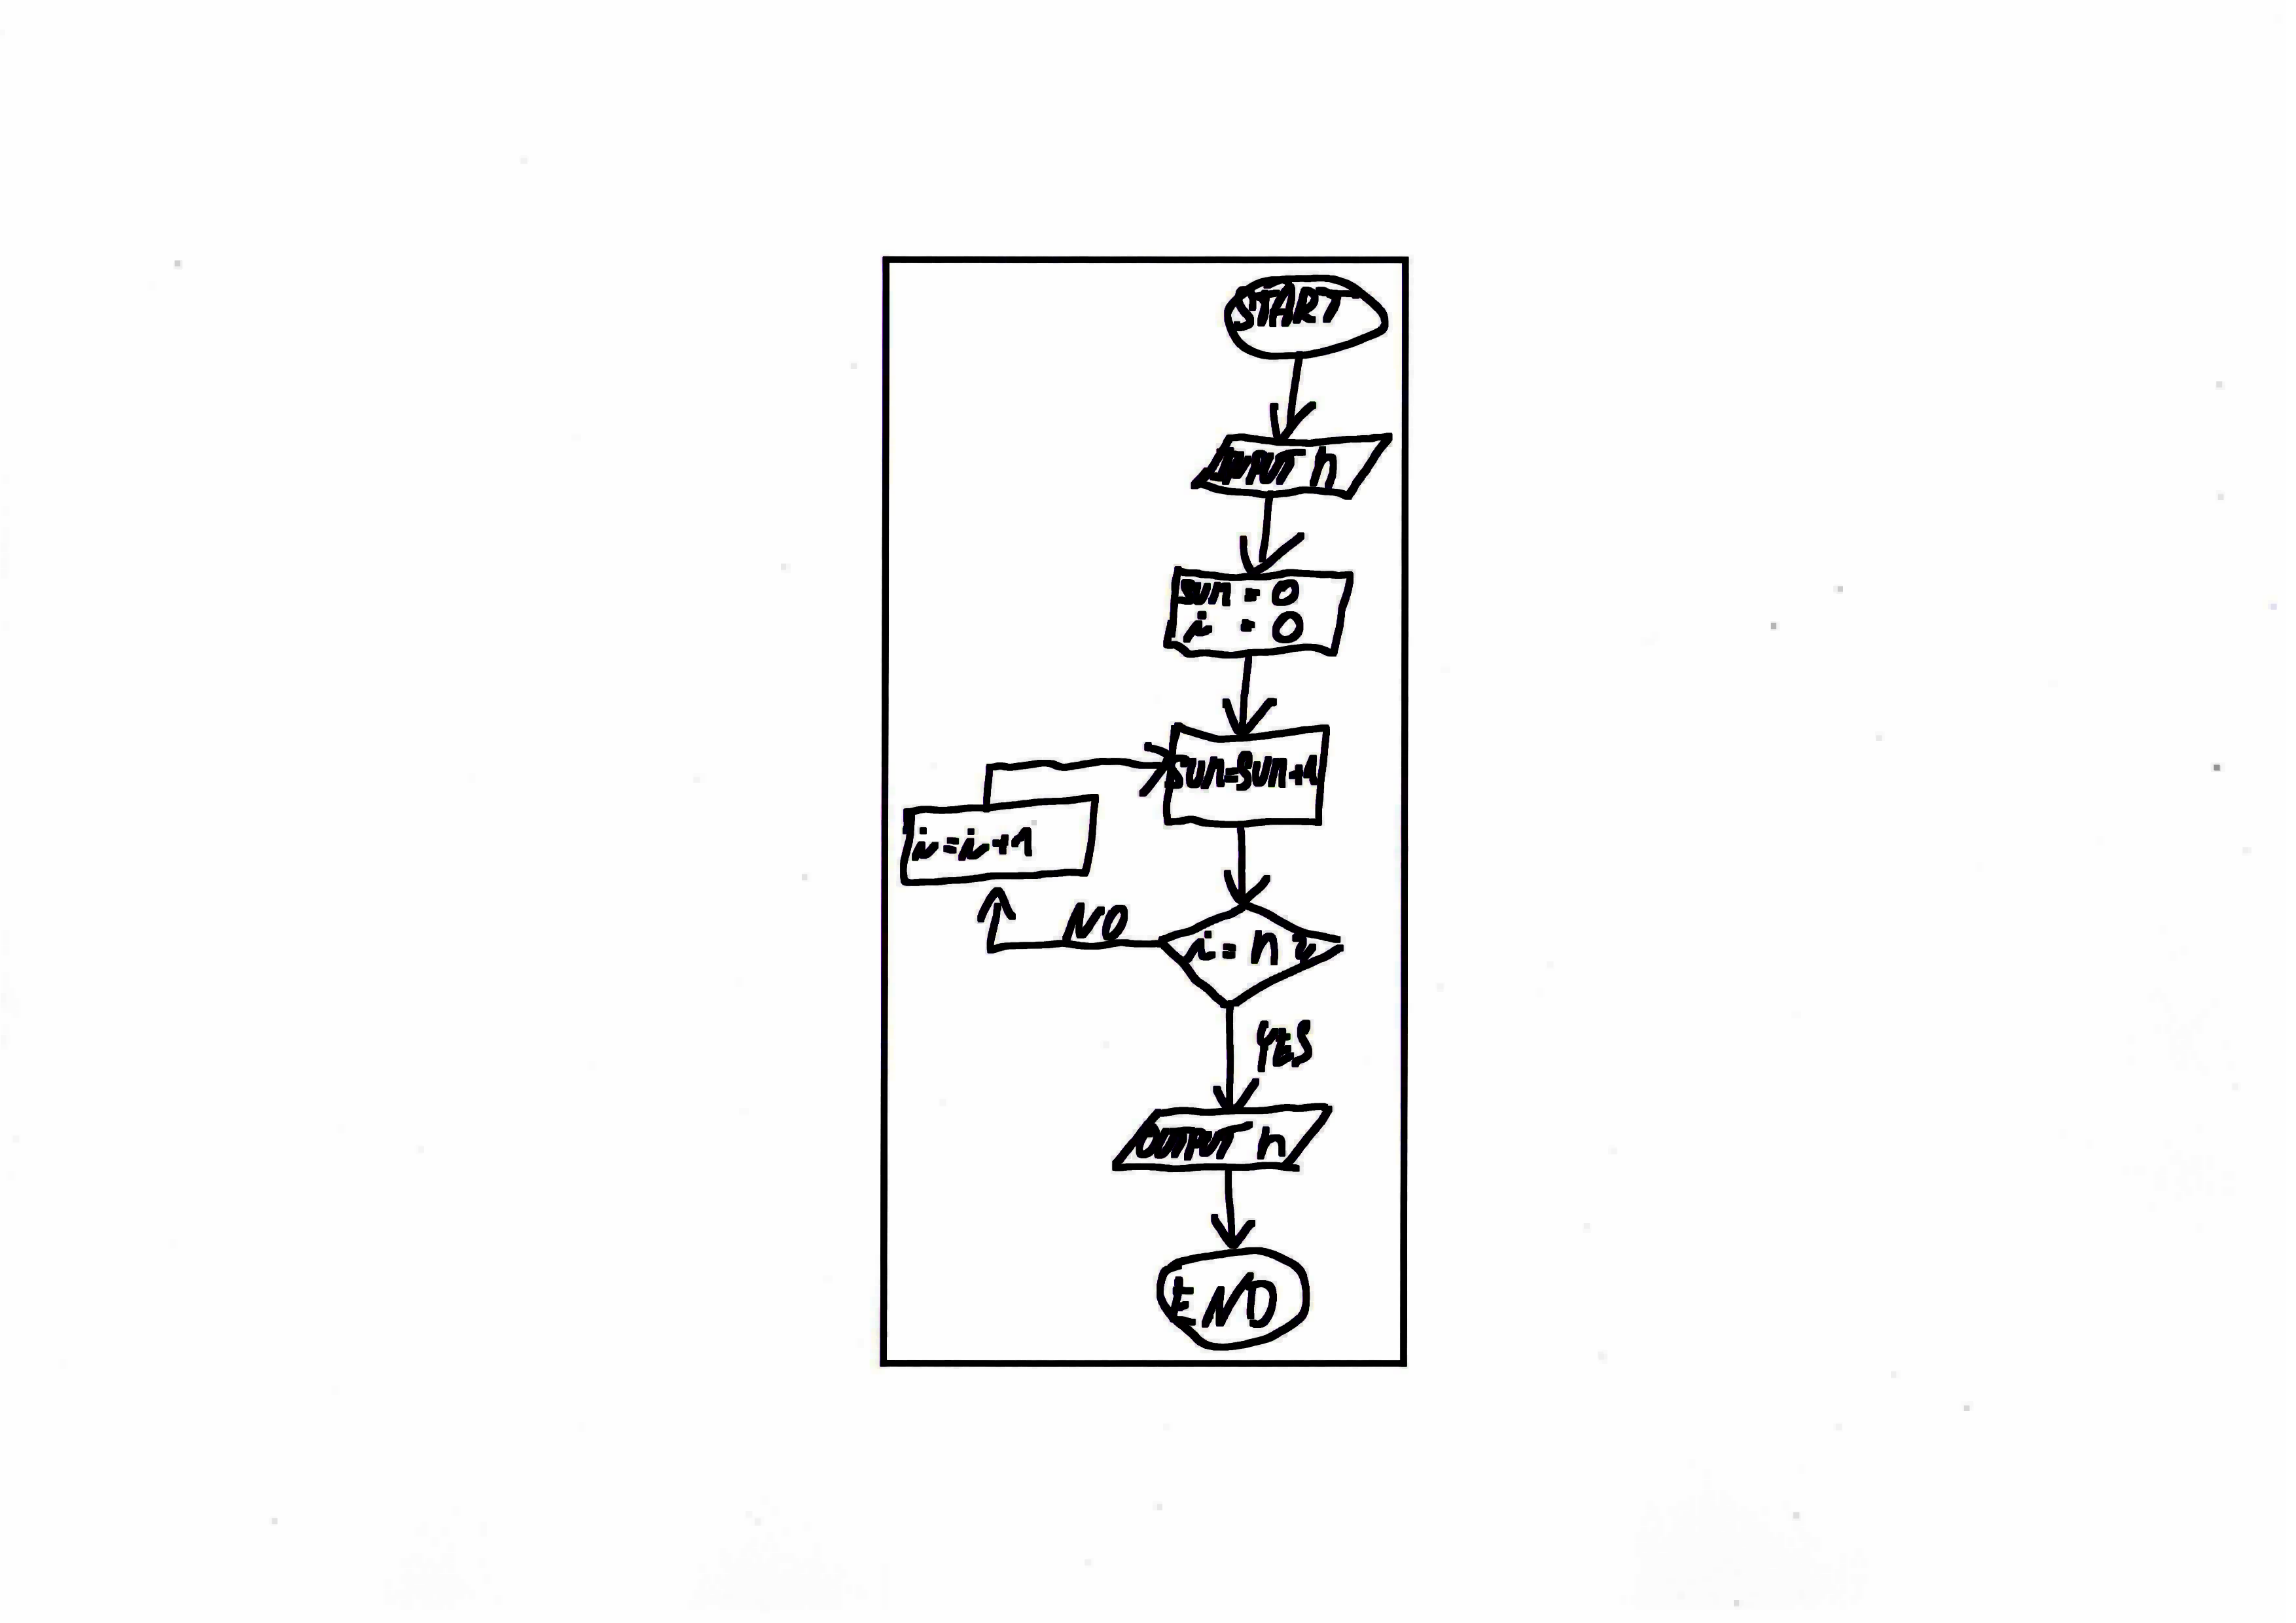 START
INPUT n
sum = 0
i = 0
sum=sum+1
i=i+1
NO
i = n ?
YES
OUTPUT n
END